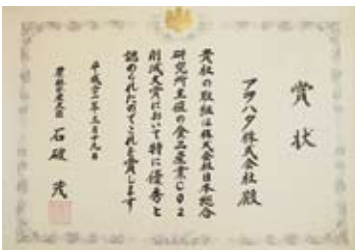 賞状
アヲハタ株式会社殿
貴社の取組は株式会社日本総合
研究所主催の食品産業CO2
削減大賞において特に優秀と
認められたのでこれを賞します
平成二十一年三月十九日
農林水産大臣 石破 茂